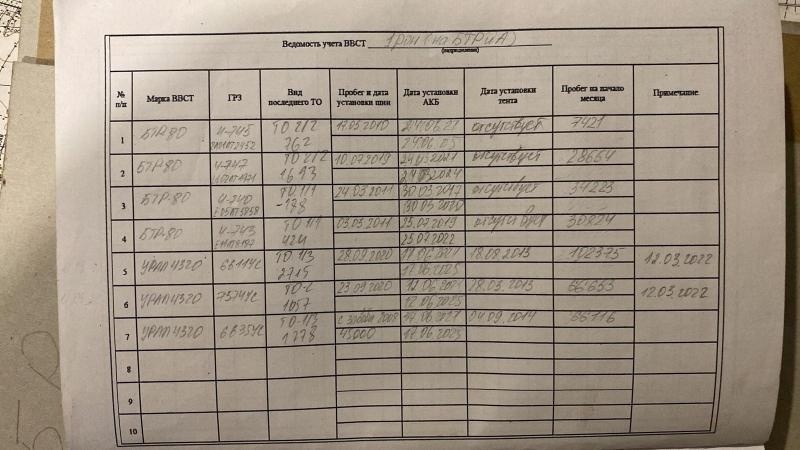 Ведомость учета ВВСТ 1 рон (на БТРиА)
(подразделение)
№ п/п Марка ВВСТ ГРЗ Вид последнего ТО Пробег и дата установки шин Дата установки АКБ Дата установки тента Пробег на начало месяца Примечание
1 БТР-80 4-745 ТО 2/2 17.05.2010 отсутствует 7421
762 24.06.25
2 БТР-80 4-747 ТО 2/2 10.07.2019 24.03.2021 отсутствует 28664
1693 24.03.2024
3 БТР-80 4-740 ТО 1/1 24.03.2011 30.03.2017 отсутствует 34223
-178 30.03.2020
4 БТР-80 4-743 ТО 1/1 03.03.2011 25.07.2019 отсутствует 30824
424 25.07.2022
5 УРАЛ 4320 6811УС ТО 1/3 28.09.2020 18.08.2013 102375 12.03.2022
2715 12.06.2025
6 УРАЛ 4320 7574УС ТО-С 23.09.2020 12.06.2021 28.03.2013 66653 12.03.2022
1057 12.06.2025
7 УРАЛ 4320 6835УС ТО-1/3 04.09.2014 66116
1778 45000 12.06.2025
8
9
10